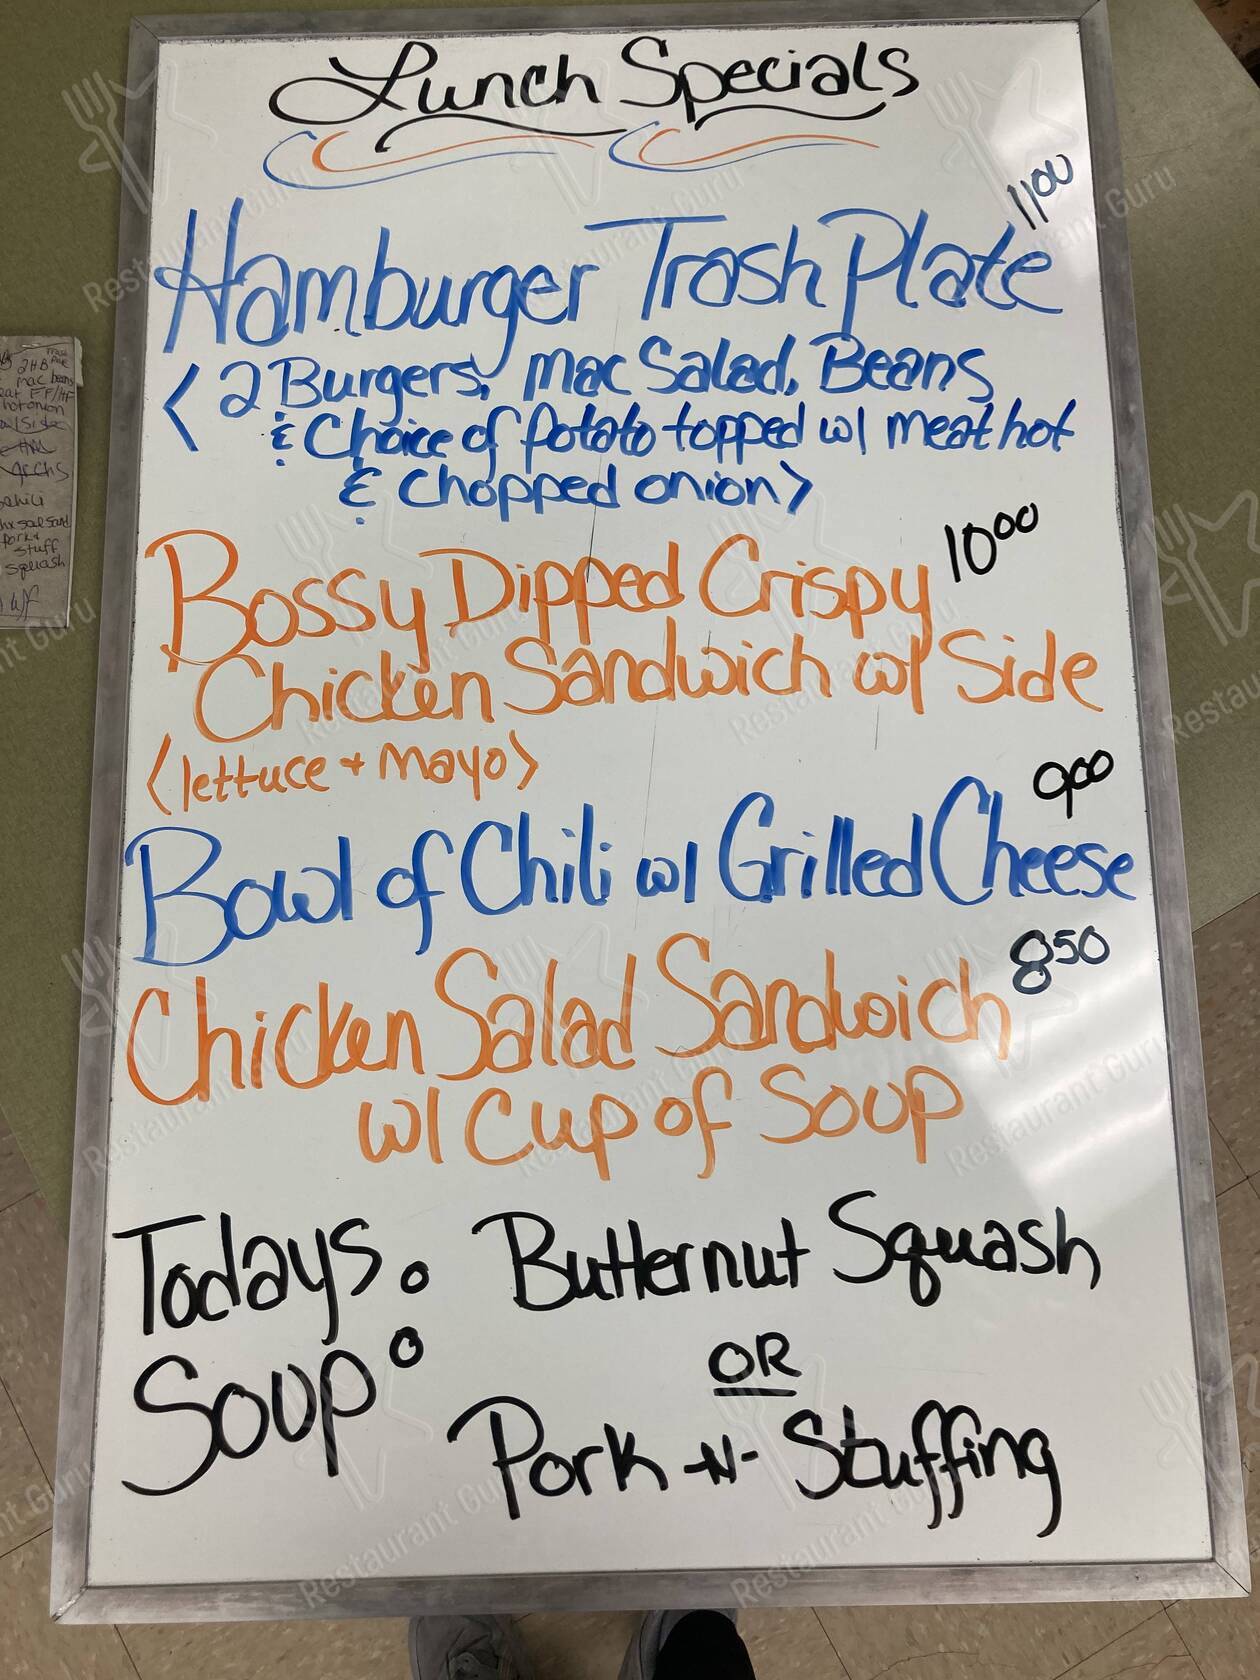 Lunch Specials
1100
Hamburger Trash Plate
<2 Burgers, Mac Salad, Beans
& Choice of potato topped w/ meat hot
& Chopped onion>
1000
Bossy Dipped Crispy
Chicken Sandwich w/ Side
<lettuce + Mayo>
900
Bowl of Chili w/ Grilled Cheese
850
Chicken Salad Sandwich
w/ Cup of Soup
Todays Soup: Butternut Squash
OR
Pork -N- Stuffing
2 HB
mac beans
hot onion
pork +
stuff
squash
Restaurant Guru